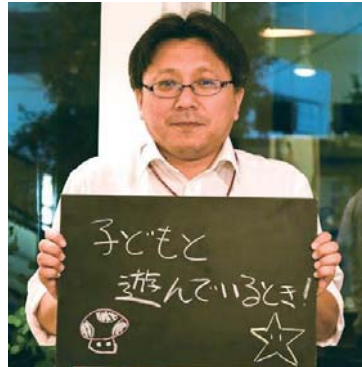 子どもと
遊んでいるとき!